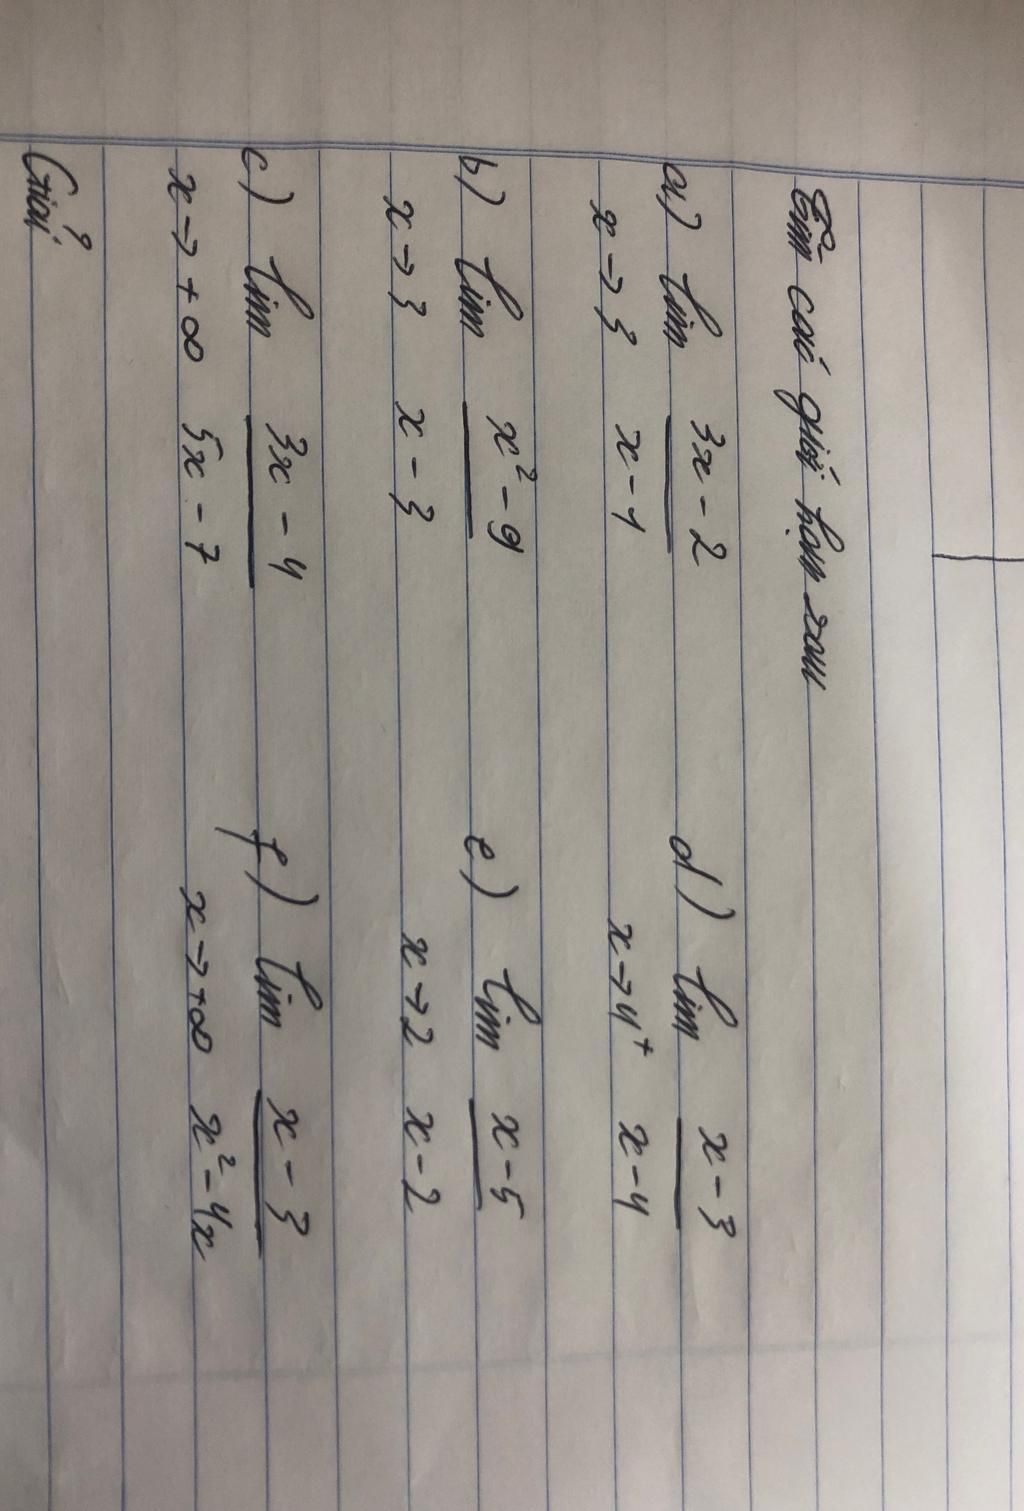 Tìm các giới hạn sau
a) lim 3x - 2
x → 3 x - 1
d) lim x - 3
x → 4⁺ x - 4
b) lim x² - 9
x → 3 x - 3
e) lim x - 5
x → 2 x - 2
c) lim 3x - 4
x → + ∞ 5x - 7
f) lim x - 3
x → +∞ x² - 4x
Giải